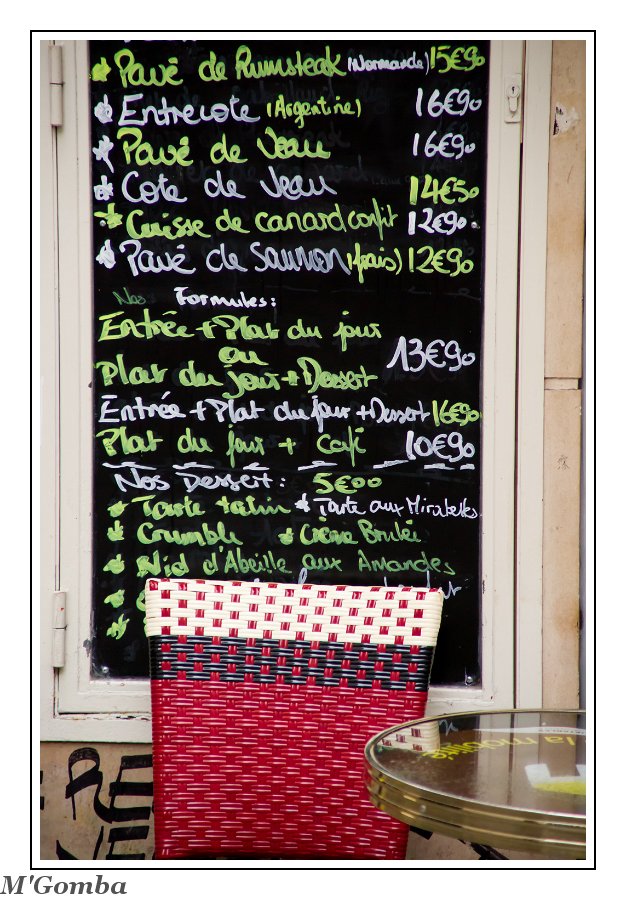 Pavé de Rumsteak (Normande) 15€90
Entrecote (Argentine) 16€90
Pavé de Veau 16€90
Cote de Veau 14€50
Cuisse de canard confit 12€90
Pavé de Saumon (frais) 12€90
Nos Formules:
Entrée + Plat du jour
ou 13€90
Plat du jour + Dessert
Entrée + Plat du jour + Dessert 16€90
Plat du jour + café 10€90
Nos Dessert: 5€00
Tarte tatin Tarte aux Mirabelles
Crumble Crème Brulée
Nid d'Abeille aux Amandes
M'Gomba